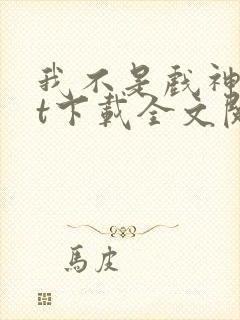 我不是戲神
t下載全文
馬皮